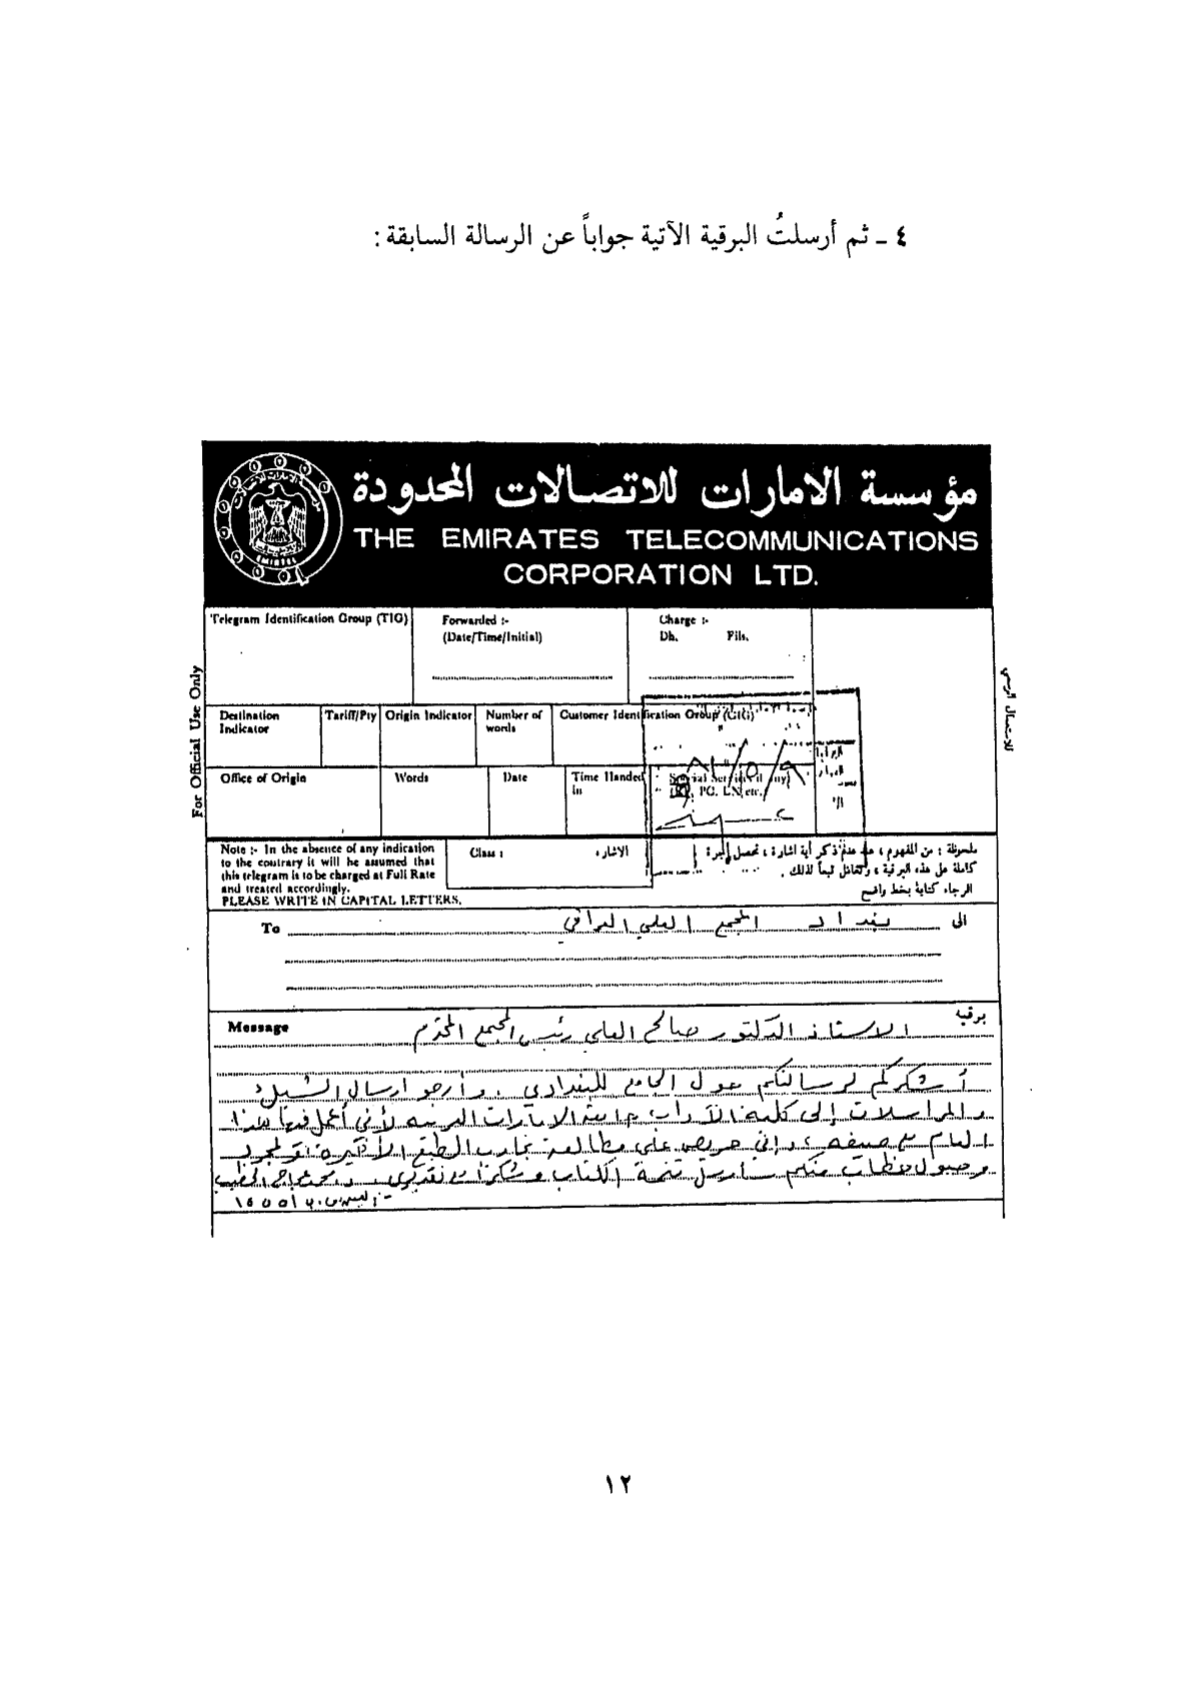 ٤ ـ ثم أرسلتُ البرقية الآتية جواباً عن الرسالة السابقة :
مؤسسة الامارات للاتصالات المحدودة
THE EMIRATES TELECOMMUNICATIONS
CORPORATION LTD.
EMIRTEL
For Official Use Only
Telegram Identification Group (TIG)
Forwarded :-
(Date/Time/Initial)
Charge :-
Dh. Fils.
Destination
Indicator
Tariff/Pty
Origin Indicator
Number of
words
Customer Identification Group (CIG)
Office of Origin
Words
Date
Time Handed
in
PC. LN etc.
٨٢/٥/٩
Note :- In the absence of any indication
to the contrary it will be assumed that
this telegram is to be charged at Full Rate
and treated accordingly.
PLEASE WRITE IN CAPITAL LETTERS.
Class :
الاشارة :
ملحوظة : من المفهوم ، عدم ذكر أية اشارة ، تحصل
كاملة عل هذه البرقية ، وتعامل تبعاً لذلك .
الرجاء كتابة بخط واضح
To
الى
بغداد المجمع العلمي العراقي
Message
برقية
الاستاذ الدكتور صالح العلي رئيس المجمع المحترم
أشكركم لرسالتكم حول الجامع للبغدادي . وأرجو ارسال الشيك
والمراسلات إلى كلية الآداب جامعة الامارات العربية لأني أعمل فيها هذا
العام واني حريص على مطالعة تجارب الطبع الأخيرة
وصول منكم سأرسل تتمة الكتاب وشكراً مع تقديري . محمد عجاج الخطيب
العين ص.ب ١٥٥٥١
١٢